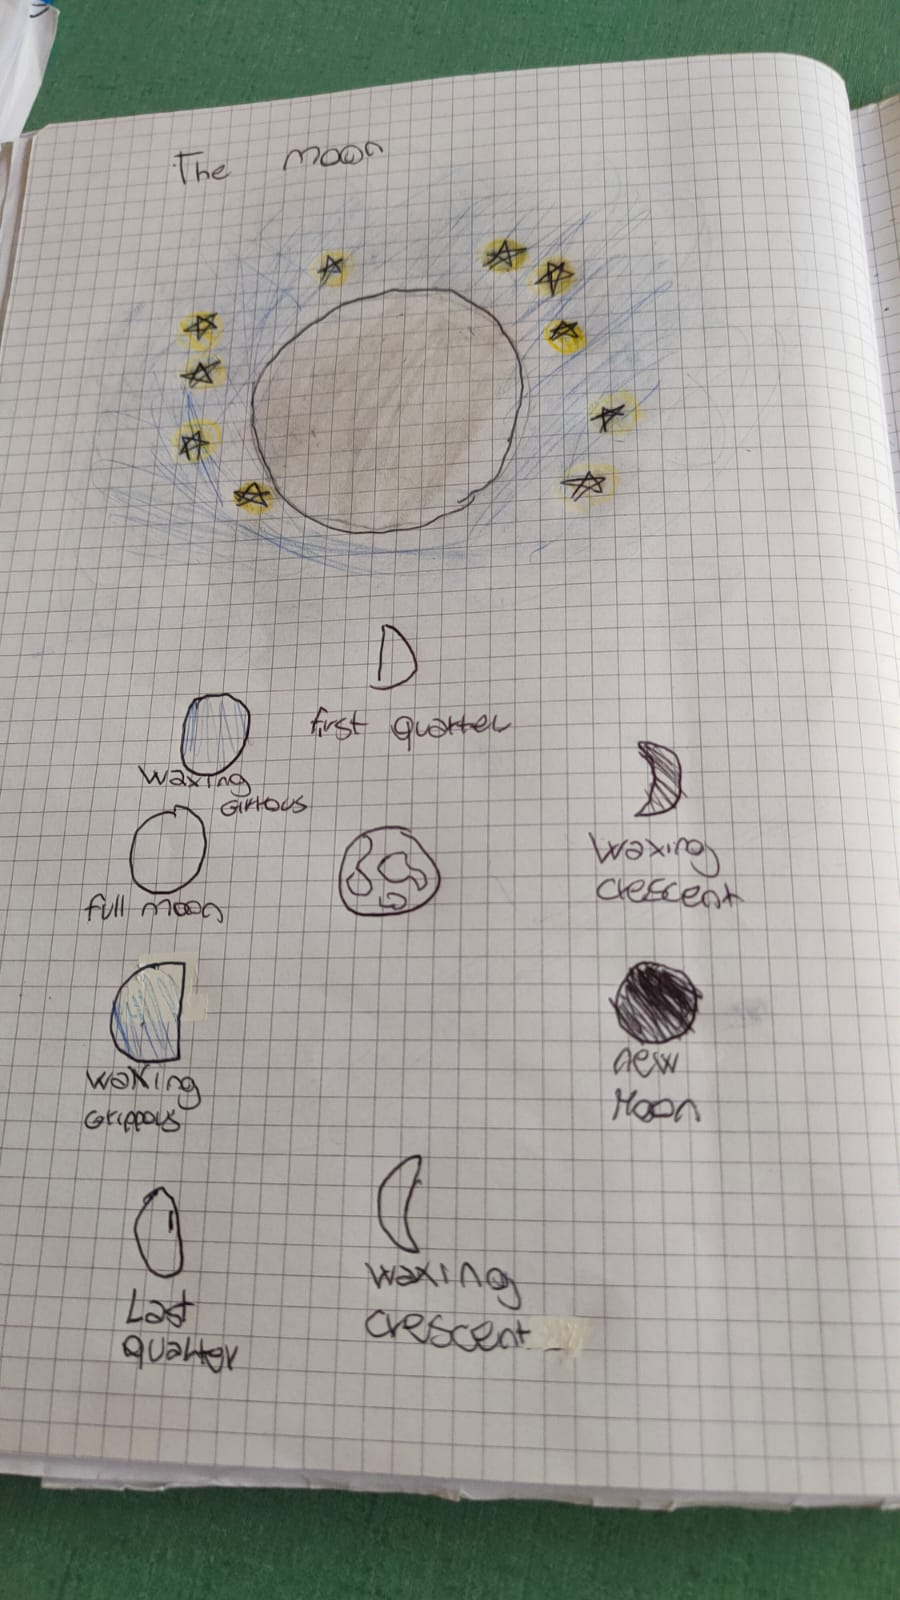 The moon
first quarter
waxing
Gibbous
Waxing
crescent
full moon
waxing
Grippous
new
Moon
Last
quarter
waxing
crescent